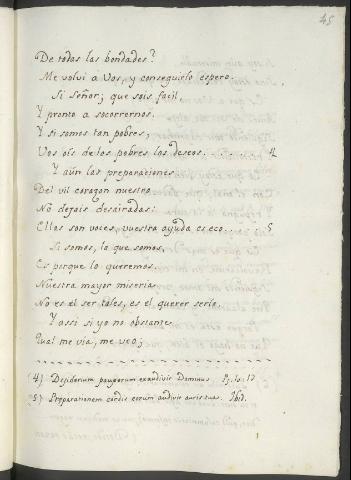 45
De todas las bondades?
Me volvi a Vos, y conseguirlo espero.
Si Señor; que sois facil,
Y pronto a socorrernos.
Y si somos tan pobres,
Vos oís de los pobres los deseos. 4
Y aún las preparaciones
Del vil corazon nuestro
No dejais desairadas:
Ellas son voces, vuestra ayuda es eco. 5
Si somos, lo que somos,
Es porque lo queremos.
Nuestra mayor miseria
No es el ser tales, es el querer serlo.
Y assi si yo no obstante
Qual me vía, me veo;
(4) Desiderium pauperum exaudivit Dominus. Ps. 10. 17
(5) Preparationem cordis eorum audivit auris tua. Ibid.